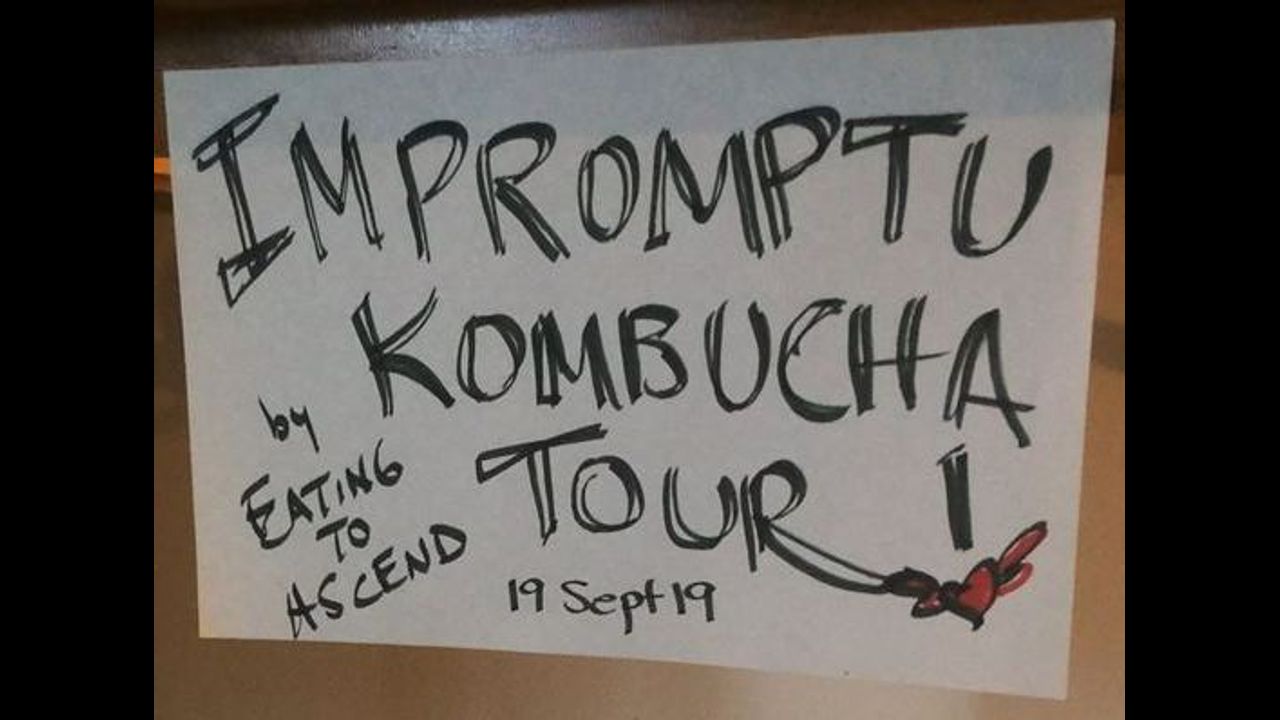 IMPROMPTU
KOMBUCHA
TOUR!
by
EATING
TO
ASCEND
19 Sept 19